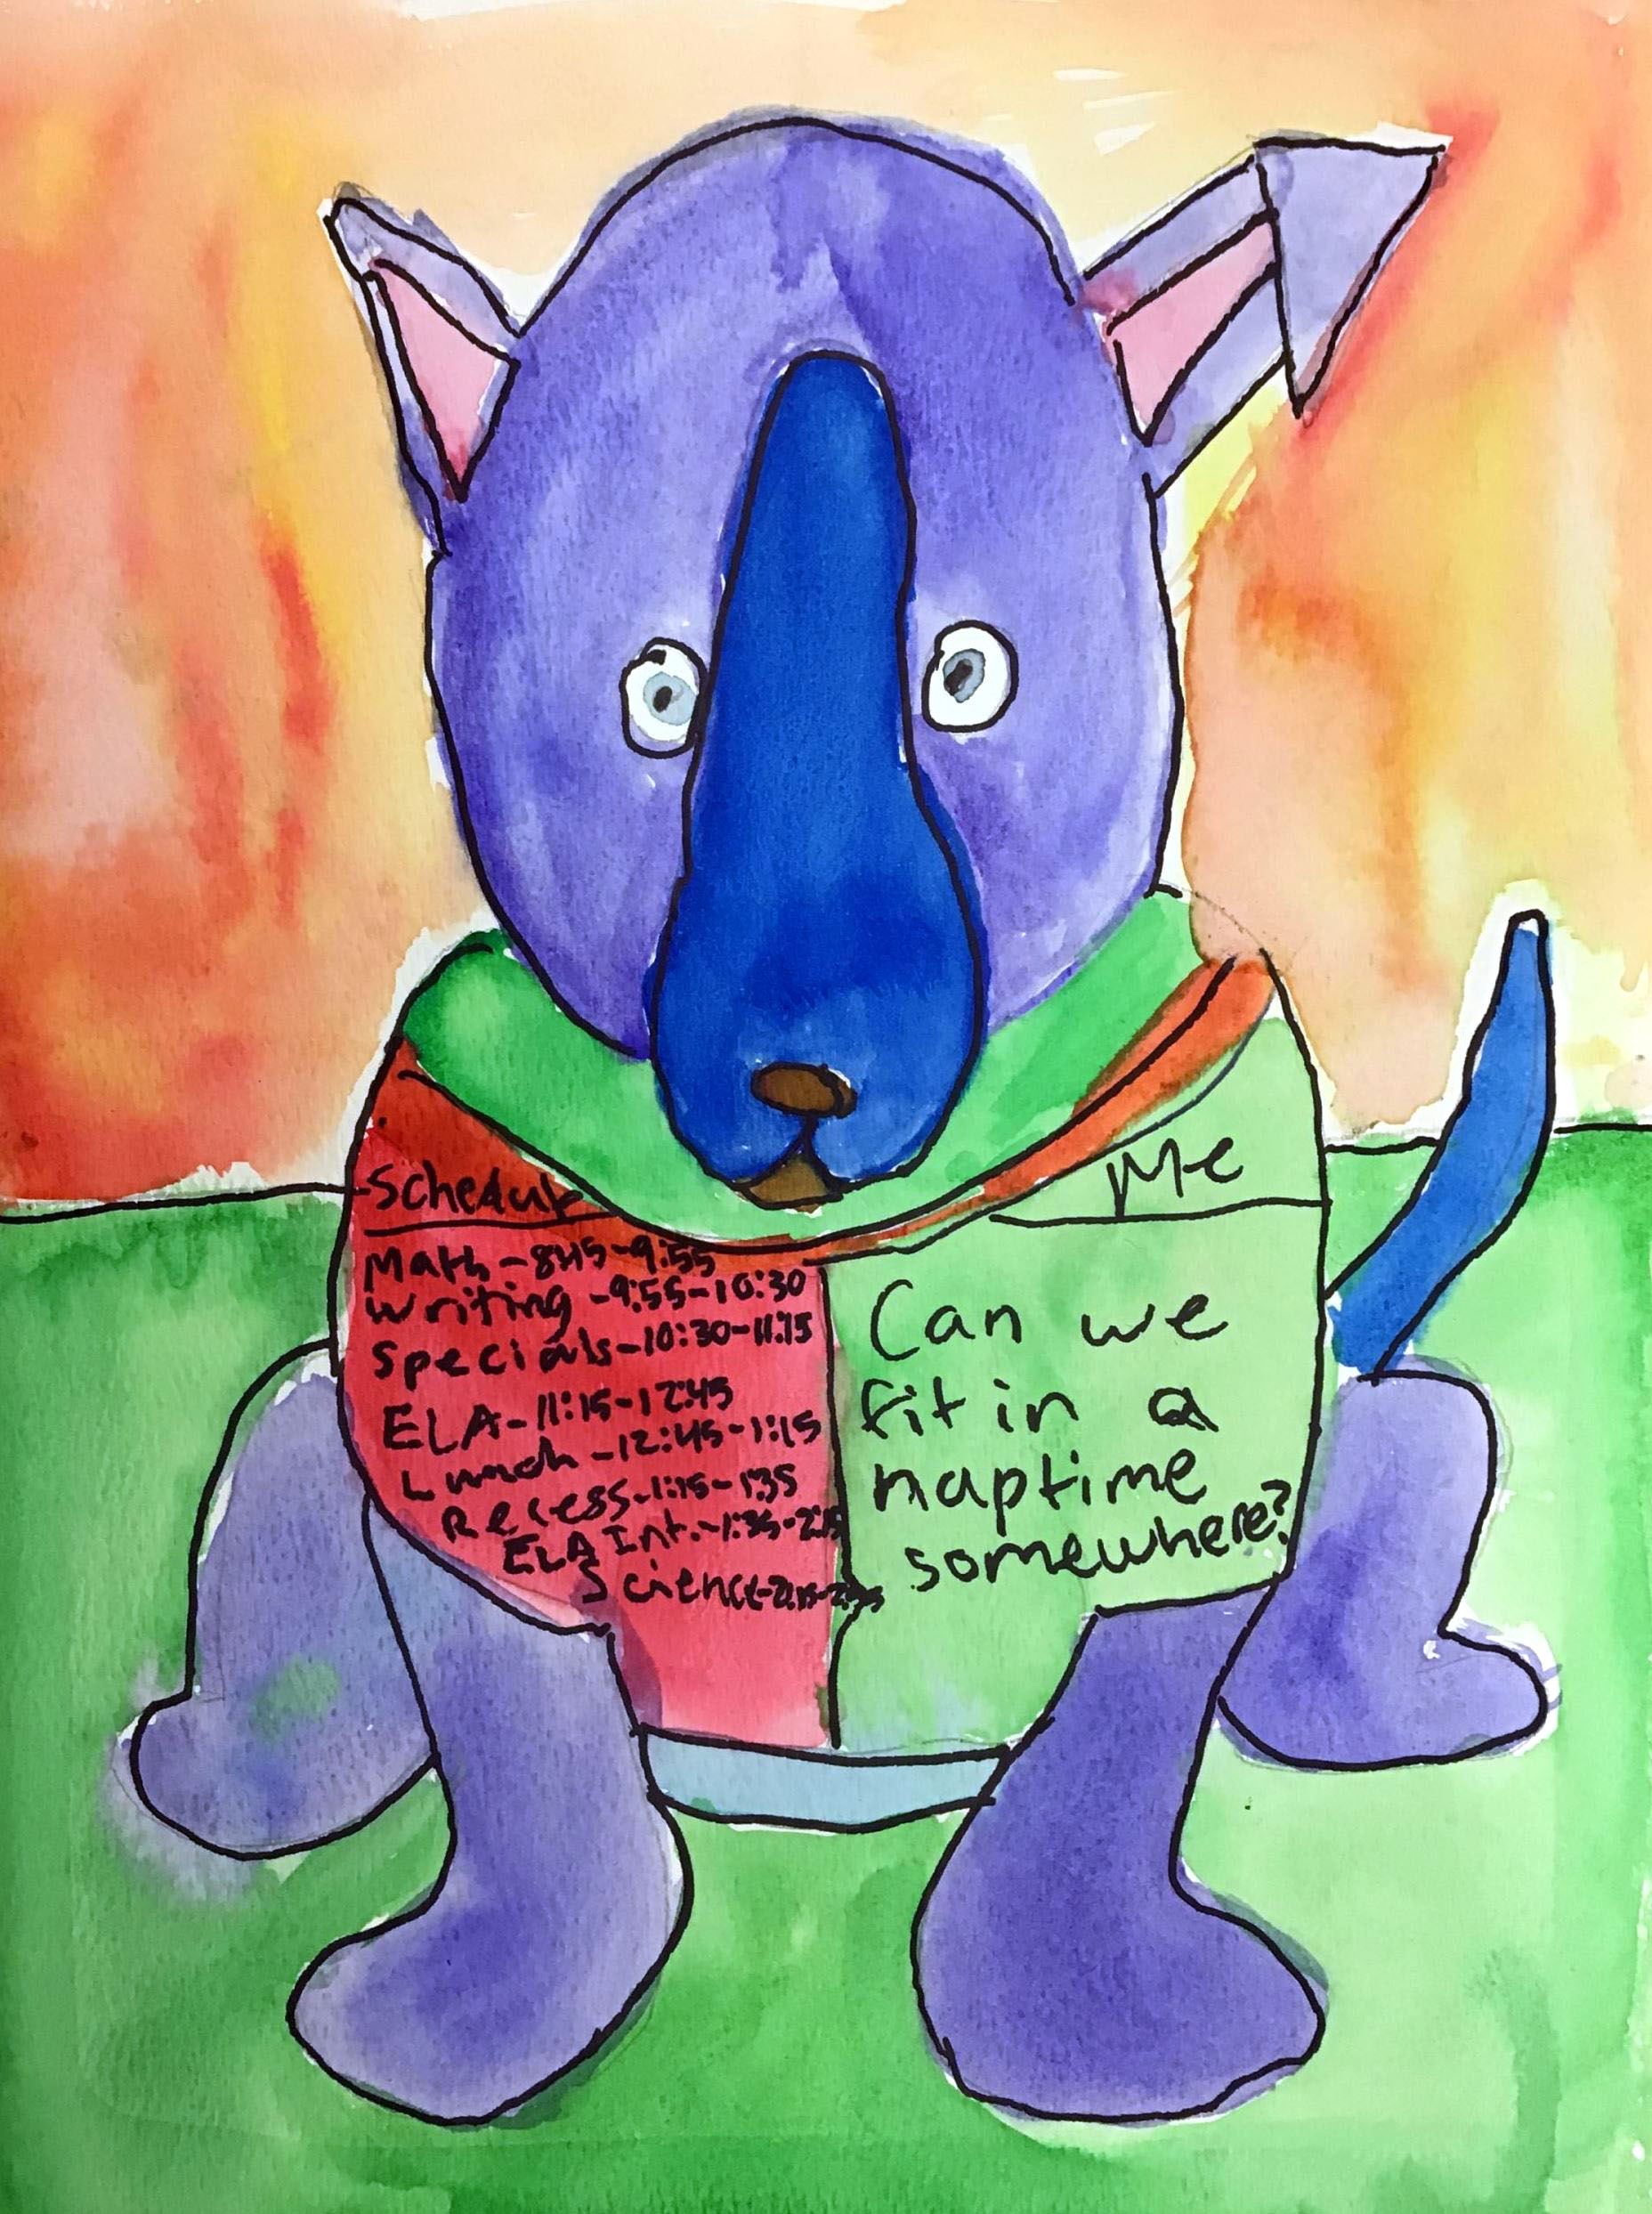 Schedule
Math - 8:45 - 9:55
Writing - 9:55 - 10:30
Specials - 10:30 - 11:15
ELA - 11:15 - 12:45
Lunch - 12:45 - 1:15
Recess - 1:15 - 1:35
ELA Int. - 1:35 - 2:15
Science - 2:15 -
Me
Can we
fit in a
naptime
somewhere?